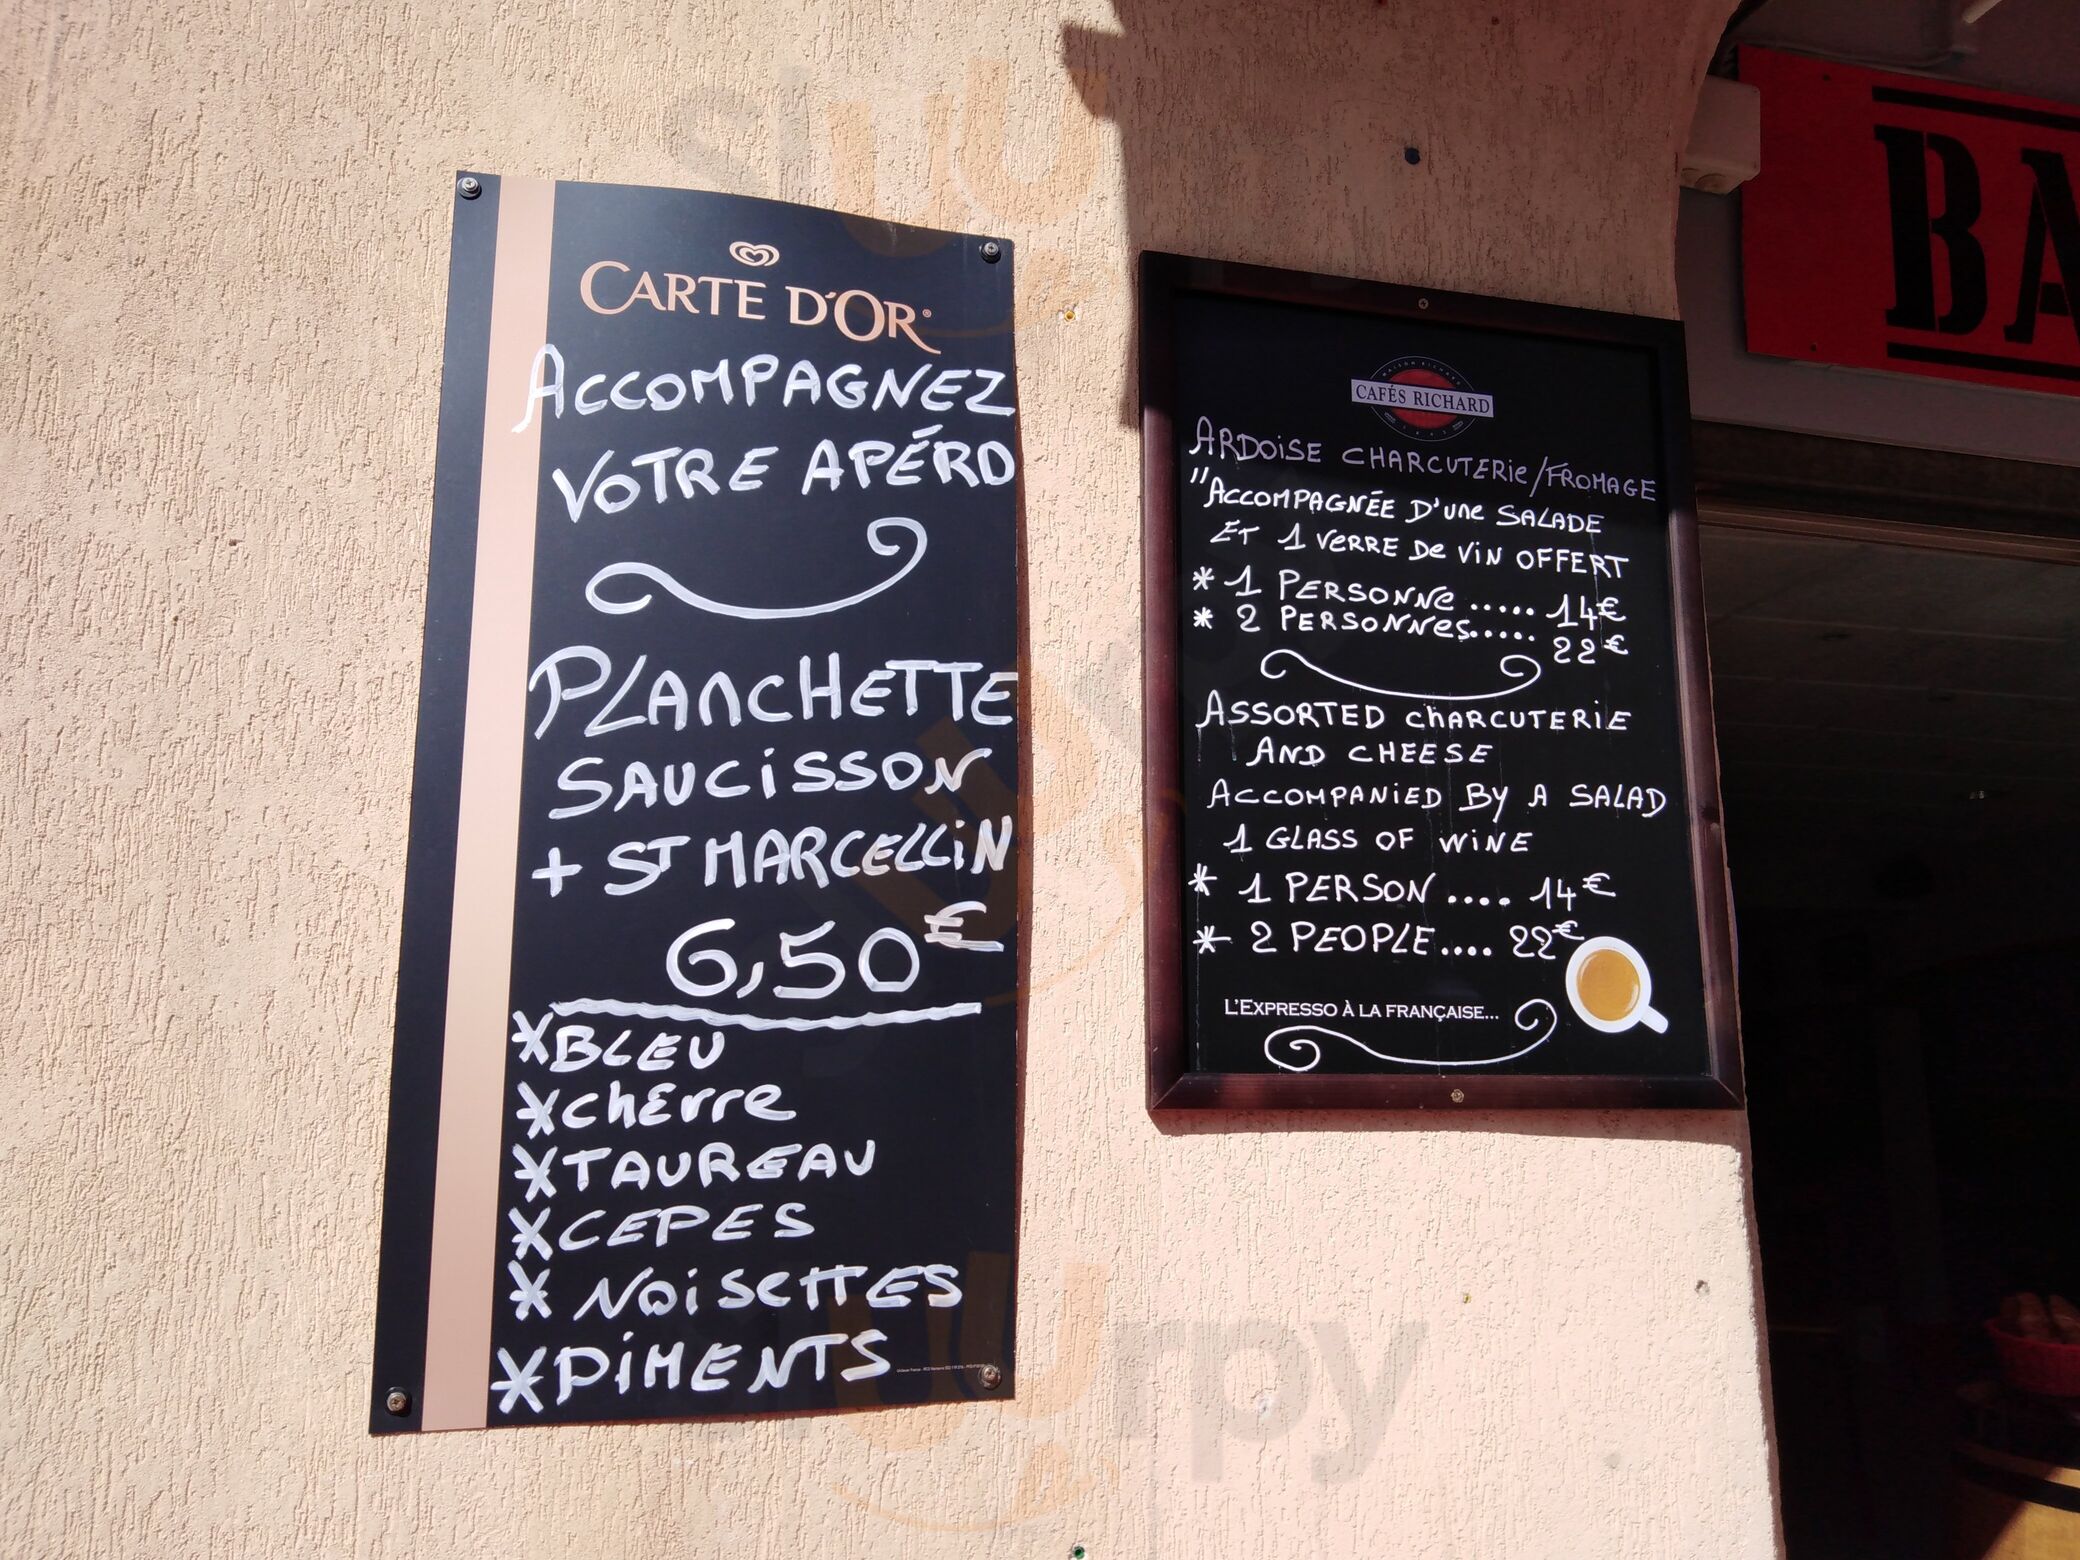 CARTE D'OR
ACCOMPAGNEZ
VOTRE APÉRO
PLANCHETTE
SAUCISSON
+ ST MARCELLIN
6,50€
*BLEU
*CHÈVRE
*TAUREAU
*CEPES
* NOISETTES
*PIMENTS
MAISON RICHARD
CAFÉS RICHARD
1892
ARDOISE CHARCUTERIE/FROMAGE
"ACCOMPAGNÉE D'UNE SALADE
ET 1 VERRE DE VIN OFFERT
* 1 PERSONNE ..... 14€
* 2 PERSONNES..... 22€
ASSORTED CHARCUTERIE
AND CHEESE
ACCOMPANIED BY A SALAD
1 GLASS OF WINE
* 1 PERSON .... 14€
* 2 PEOPLE.... 22€
L'EXPRESSO À LA FRANÇAISE...
BA
sluurpy
sluurpy
sluurpy